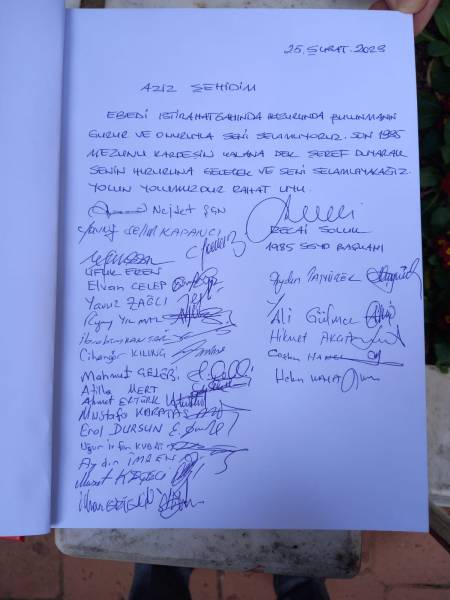 25. ŞUBAT. 2023
AZİZ ŞEHİDİM
EBEDİ İSTİRAHATGAHINDA HUZURUNDA BULUNMANIN
GURUR VE ONURUYLA SENİ SELAMLIYORUZ. SON 1985
MEZUNU KARDEŞİN KALANA DEK ŞEREF DUYARAK
SENİN HUZURUNA GELECEK VE SENİ SELAMLAYACAĞIZ.
YOLUN YOLUMUZDUR RAHAT UYU.
Nejdet ŞEN
Yavuz Selim KAPANCI
RECAİ SOLUK
1985 BAŞKANI
UFUK EREN
Elvan CELEP
Yavuz ZAĞLI
YILMAZ
Cihangir KILINÇ
Mahmut
Atilla MERT
Ahmet ERTÜRK
Mustafa KARATAŞ
Erol DURSUN
Aydın
İlhan
Aydın
Ali Gülmez
Hikmet
Coşkun
Hakan